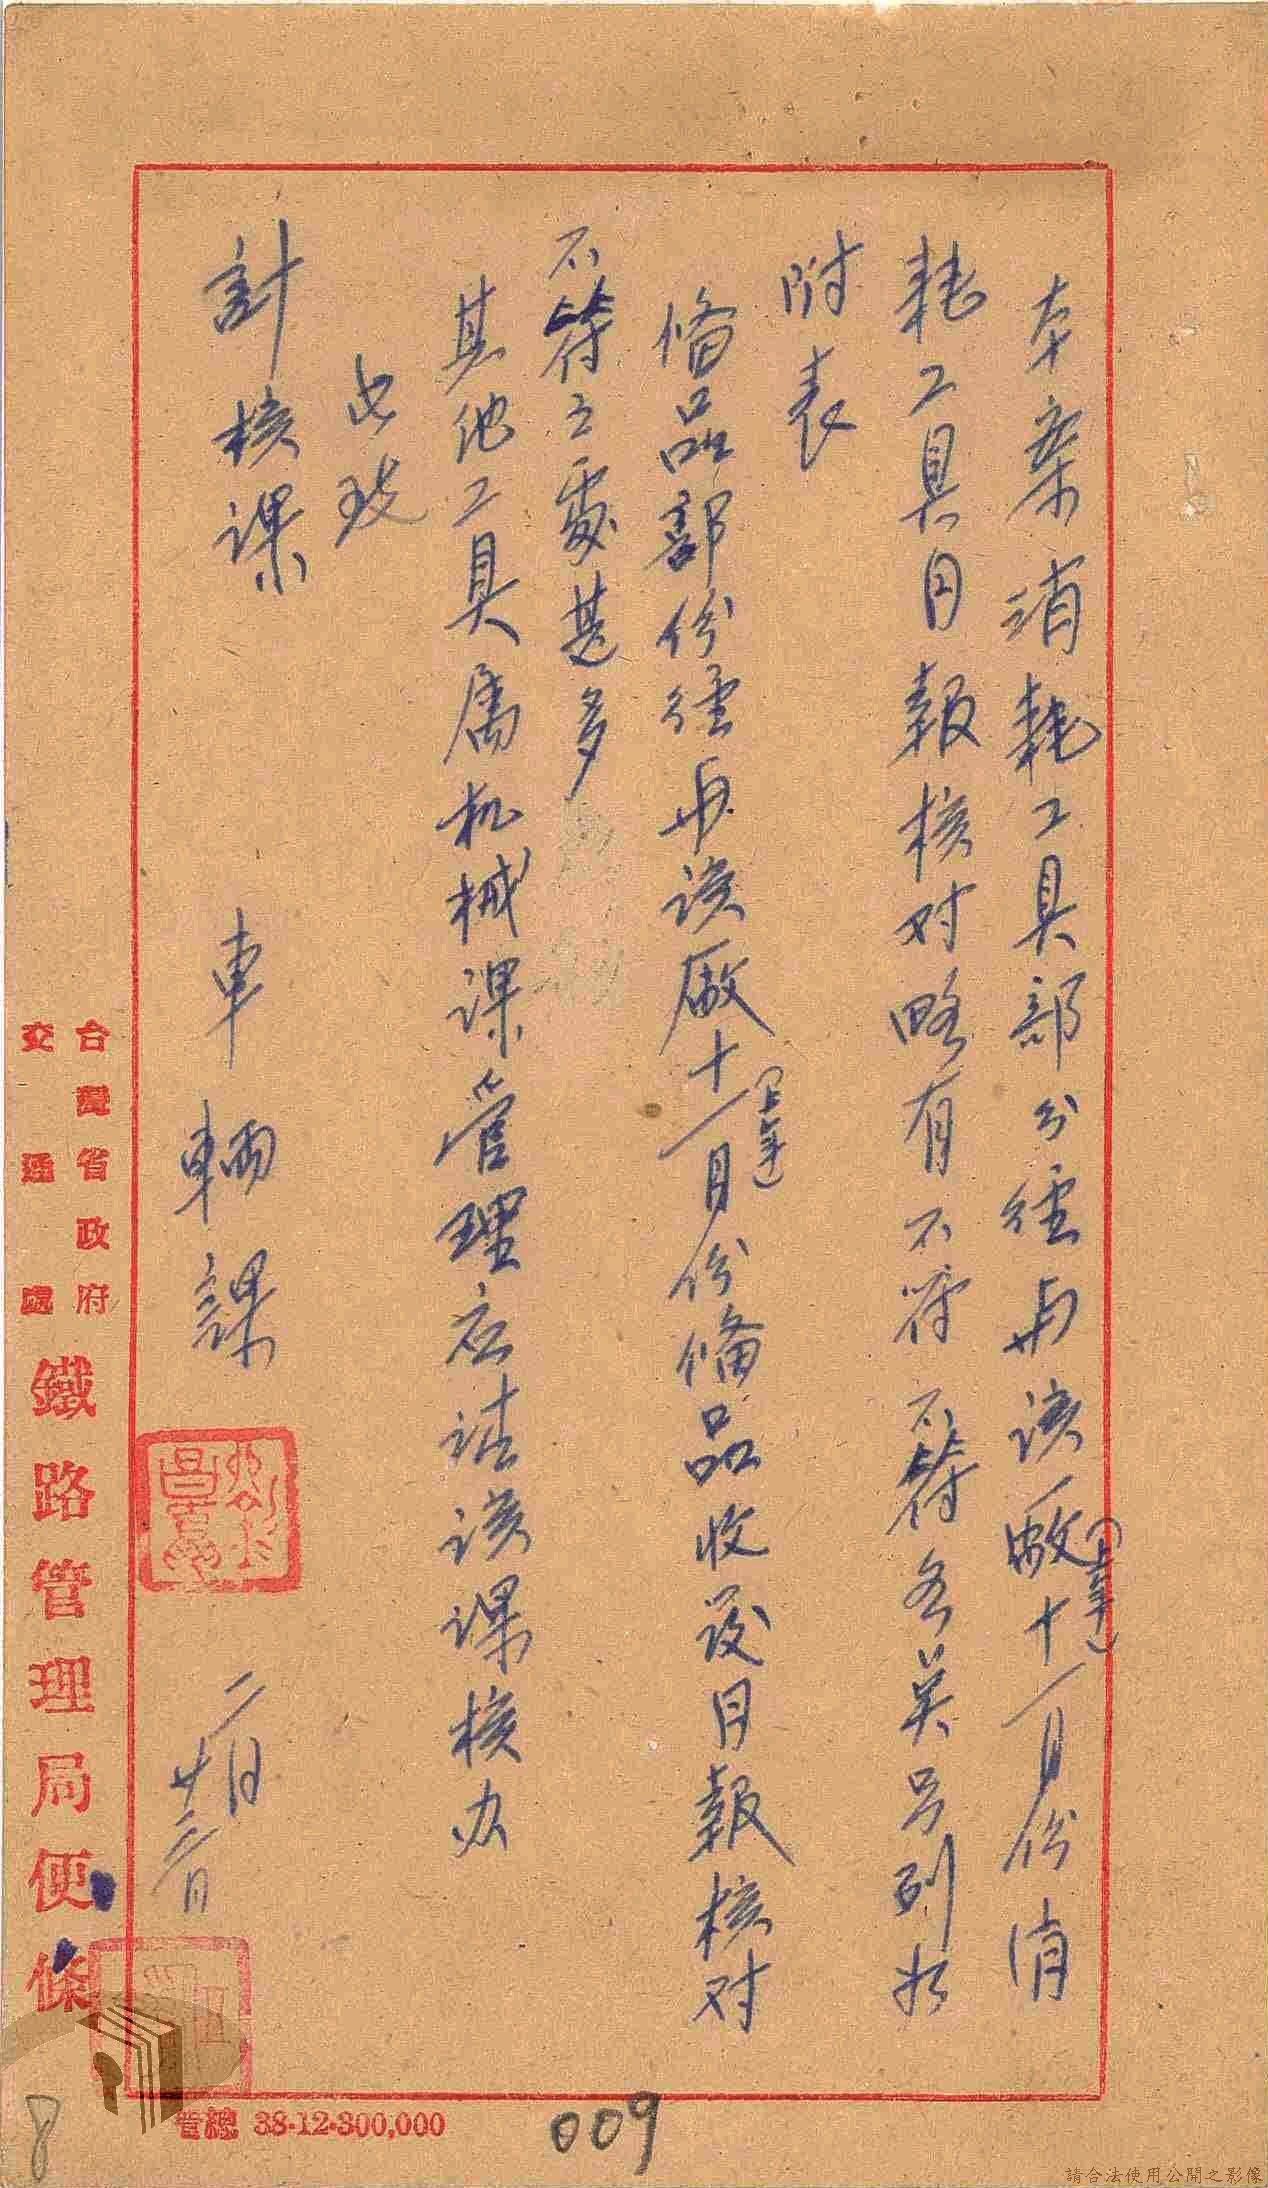 本案消耗工具部分經与該廠十一月份消
(上年)
耗工具月報核对略有不符不符各英号列於
附表
俻品部份經与該廠十一月份俻品收发月報核对
(上年)
不符之處甚多
其他工具属机械課管理应請該課核办
此致
計核課
車輛課
二月廿三日
台灣省政府
交通處
鐵路管理局便條
管總 38-12-300,000
009
8
請合法使用公開之影像